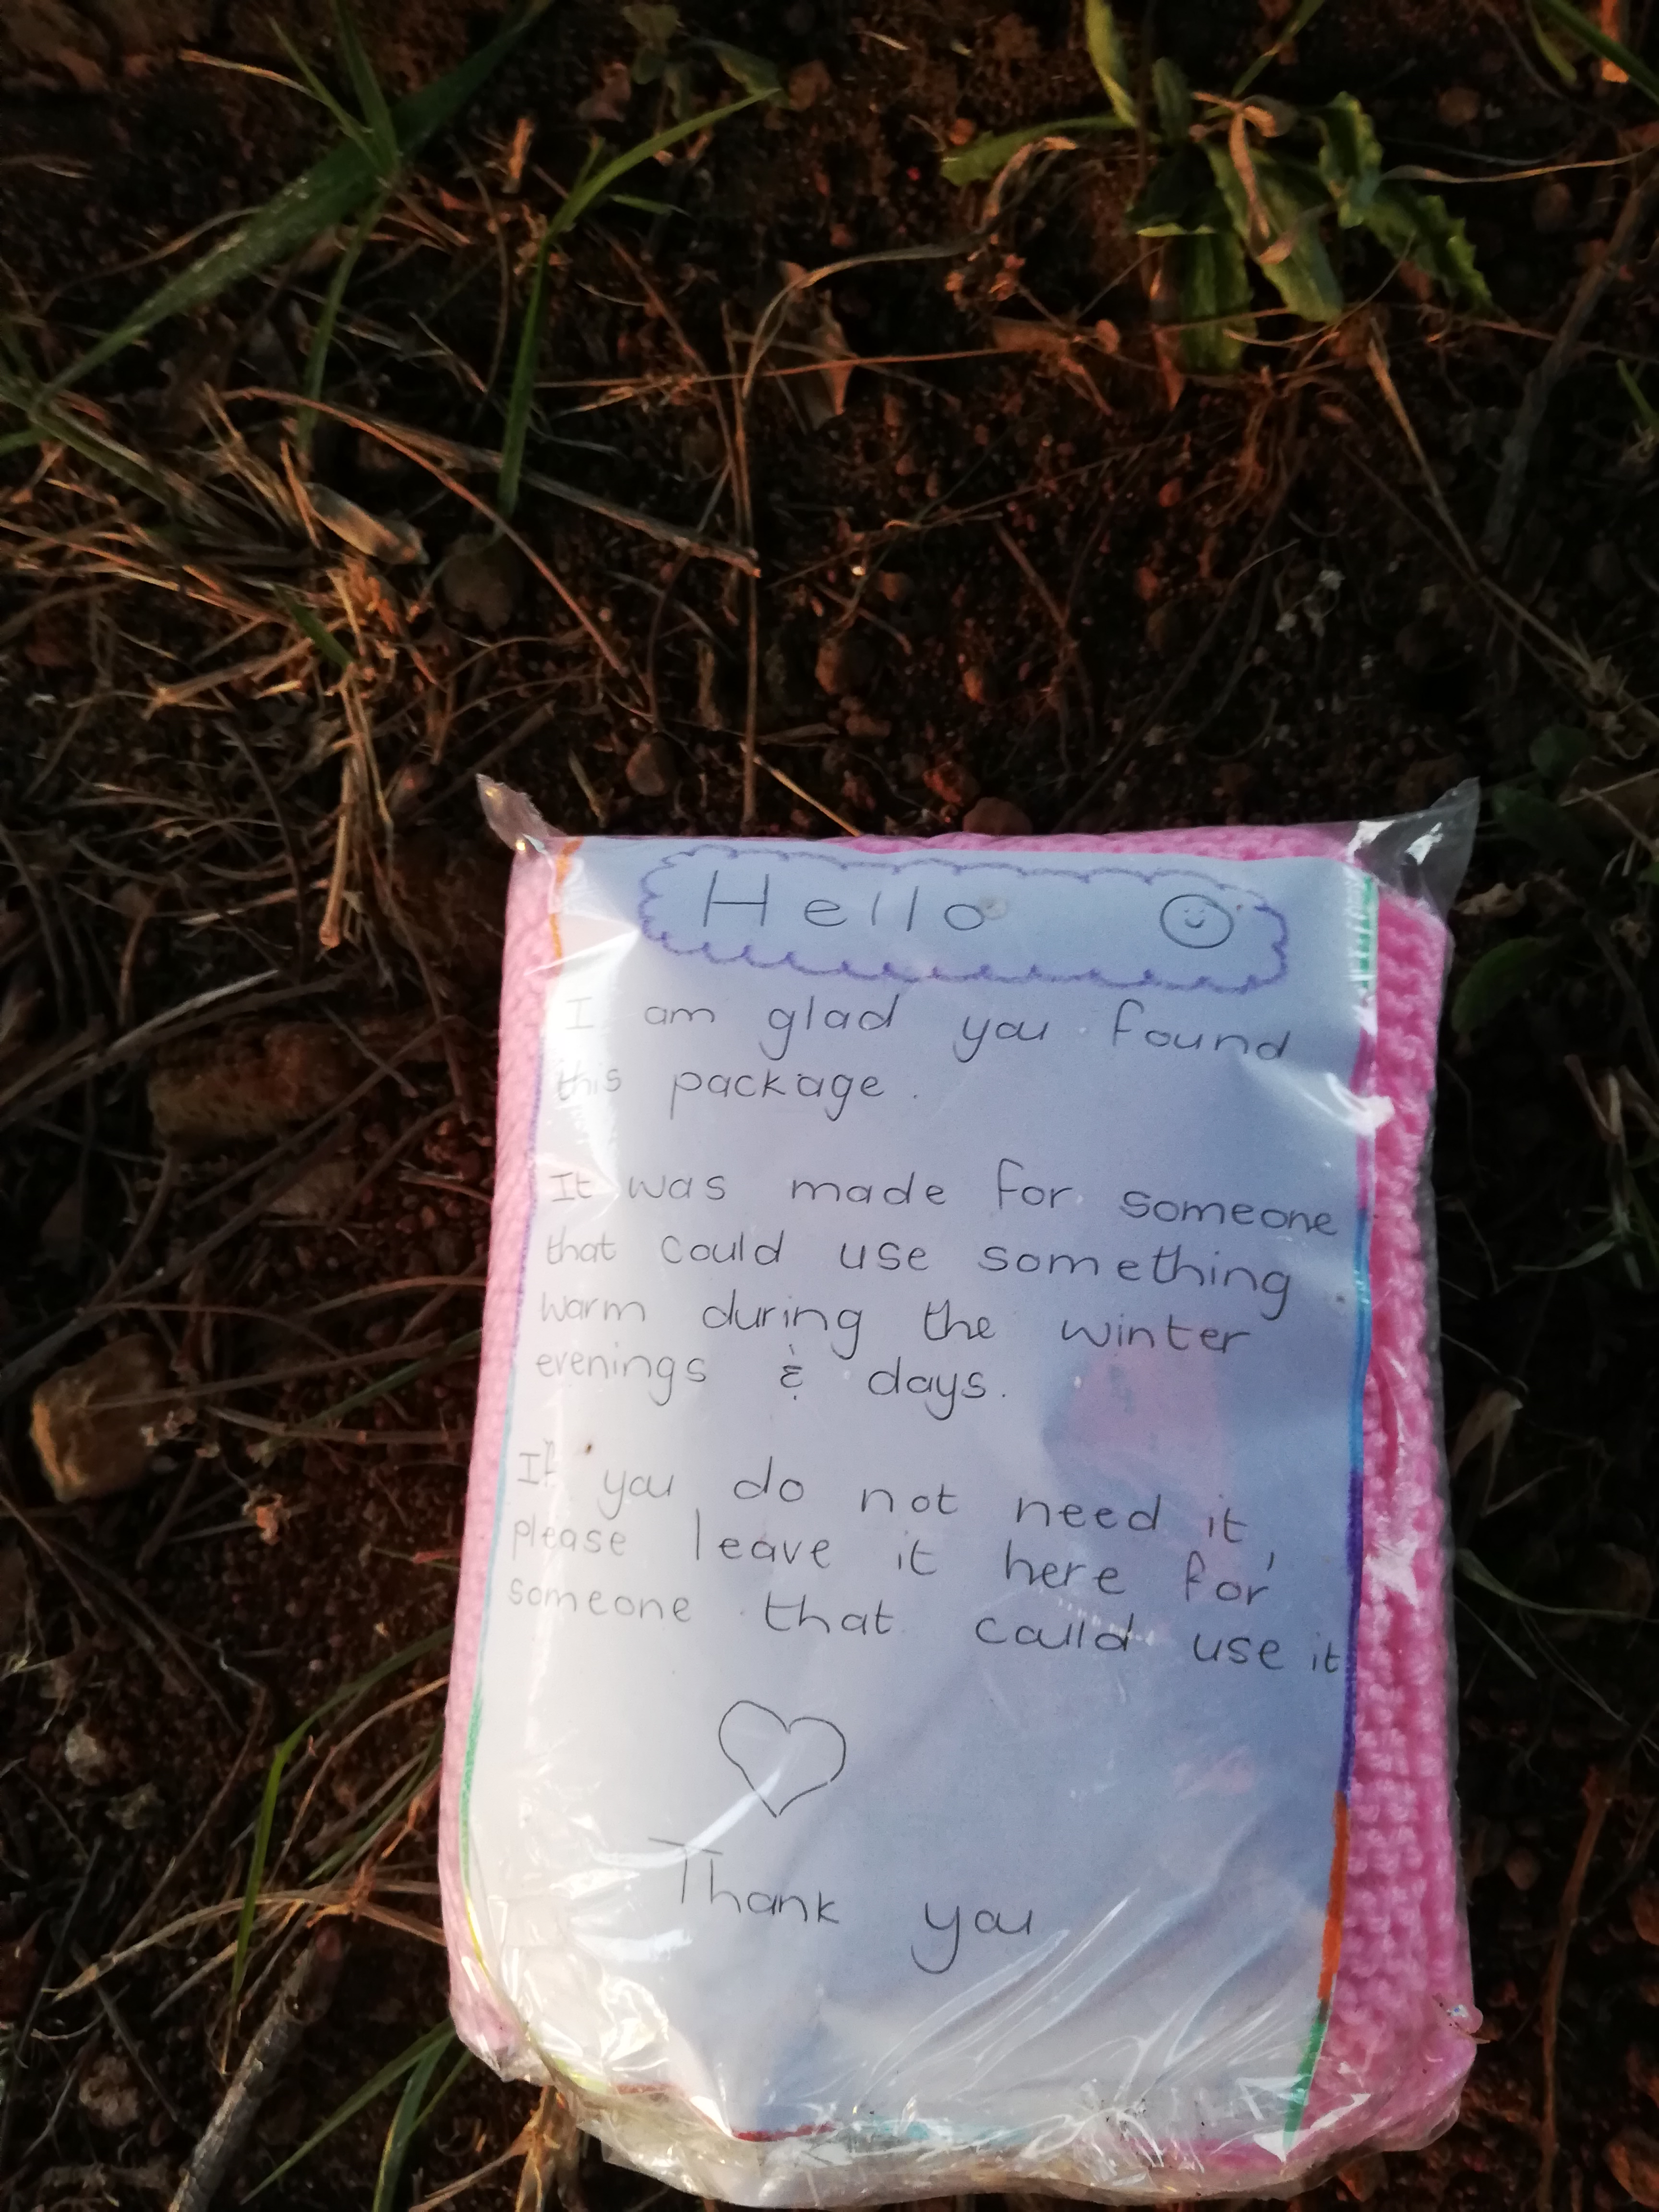 Hello
I am glad you found
this package.
It was made for someone
that could use something
warm during the winter
evenings & days.
If you do not need it,
please leave it here for
someone that could use it
Thank you